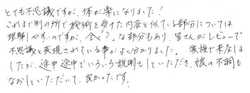 とても不思議ですが、体が楽になりました!
これまで別の所で施術を受けた内容と似ている部分については
理解しやすいのですが、今どう?な部分もあり 皆さんがレビューで
不思議と表現されている事がよく分かりました。 家族で来店しま
したが、途中途中でいろいろ説明もしていただき、娘の不調も
なおしていただいて、良かったです。